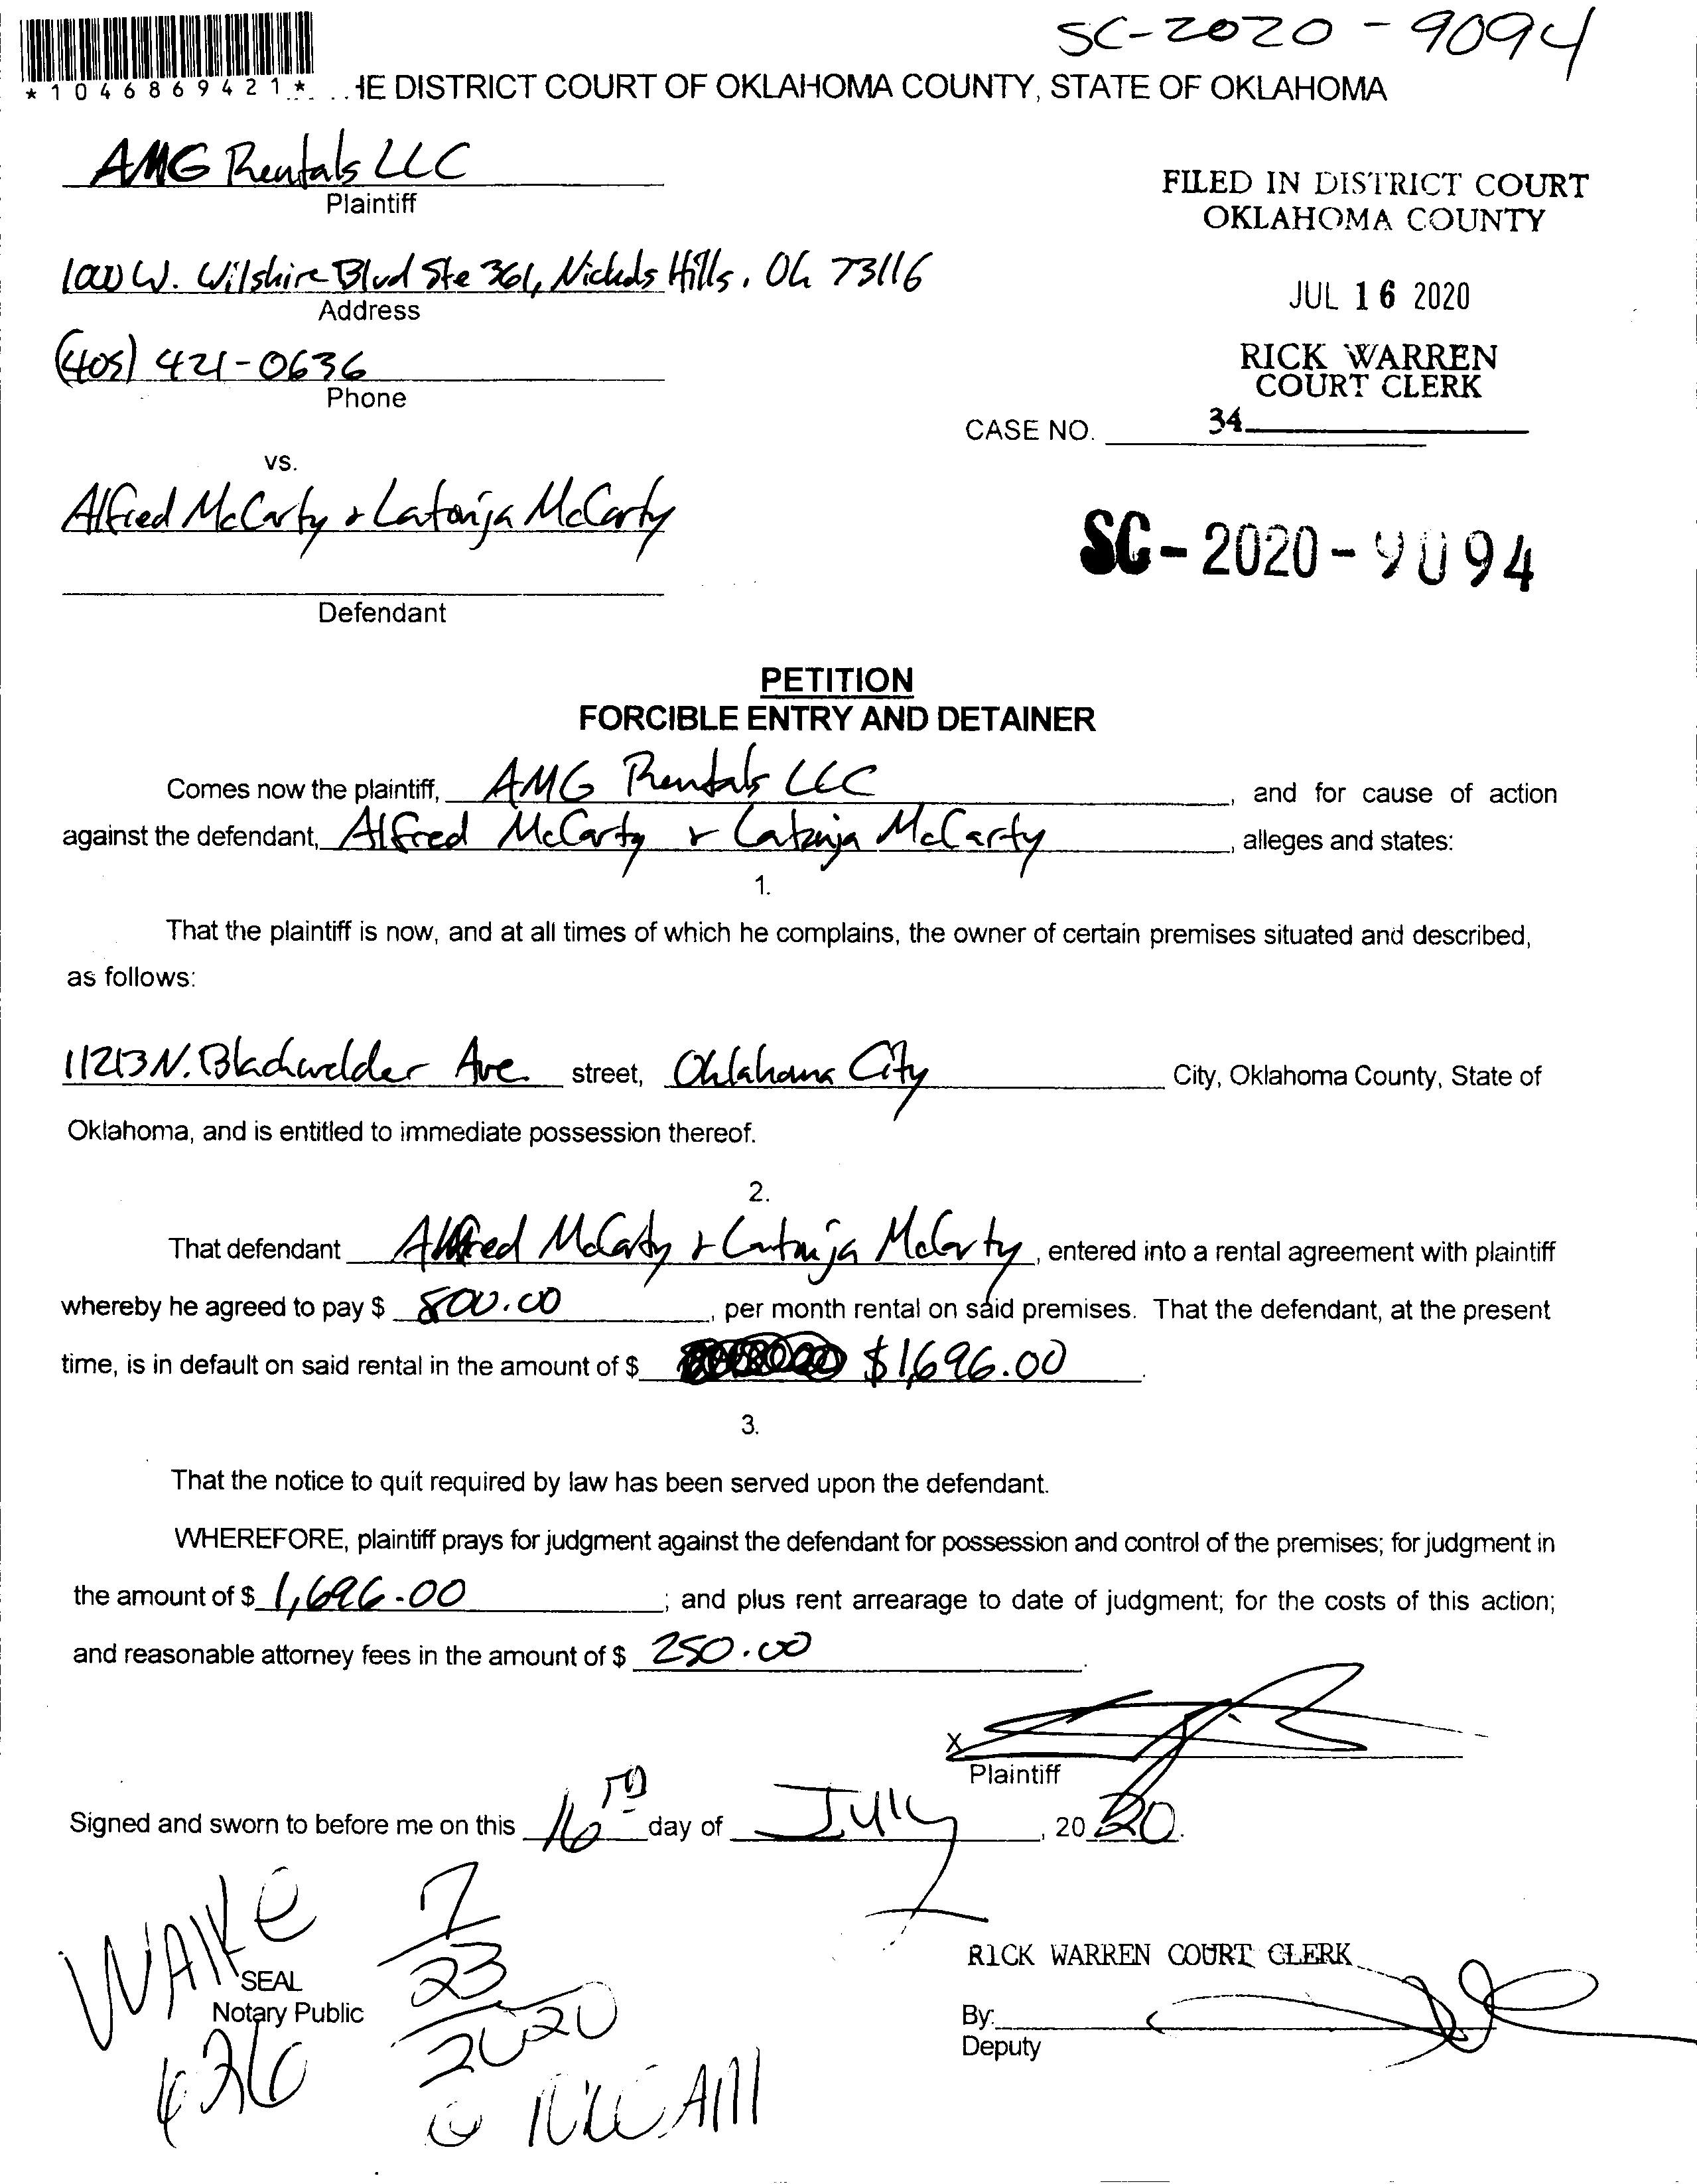 SC-2020-9094
*1046869421*
HE DISTRICT COURT OF OKLAHOMA COUNTY, STATE OF OKLAHOMA
AMG Rentals LLC
Plaintiff
FILED IN DISTRICT COURT
OKLAHOMA COUNTY
1000 W. Wilshire Blvd Ste 361, Nichols Hills, OK 73116
Address
JUL 16 2020
(405) 421-0636
Phone
RICK WARREN
COURT CLERK
CASE NO. 34
vs.
Alfred McCarty & Latonja McCarty
SC-2020-9094
Defendant
PETITION
FORCIBLE ENTRY AND DETAINER
Comes now the plaintiff, AMG Rentals LLC, and for cause of action
against the defendant, Alfred McCarty & Latonja McCarty, alleges and states:
1.
That the plaintiff is now, and at all times of which he complains, the owner of certain premises situated and described,
as follows:
11213 N. Blackwelder Ave. street, Oklahoma City City, Oklahoma County, State of
Oklahoma, and is entitled to immediate possession thereof.
2.
That defendant Alfred McCarty & Latonja McCarty, entered into a rental agreement with plaintiff
whereby he agreed to pay $ 800.00, per month rental on said premises. That the defendant, at the present
time, is in default on said rental in the amount of $ $1,696.00.
3.
That the notice to quit required by law has been served upon the defendant.
WHEREFORE, plaintiff prays for judgment against the defendant for possession and control of the premises; for judgment in
the amount of $ 1,696.00; and plus rent arrearage to date of judgment; for the costs of this action;
and reasonable attorney fees in the amount of $ 250.00.
X
Plaintiff
Signed and sworn to before me on this 16 day of July, 2020.
7
23
2020
SEAL
Notary Public
RICK WARREN COURT CLERK
By:
Deputy
@ AM